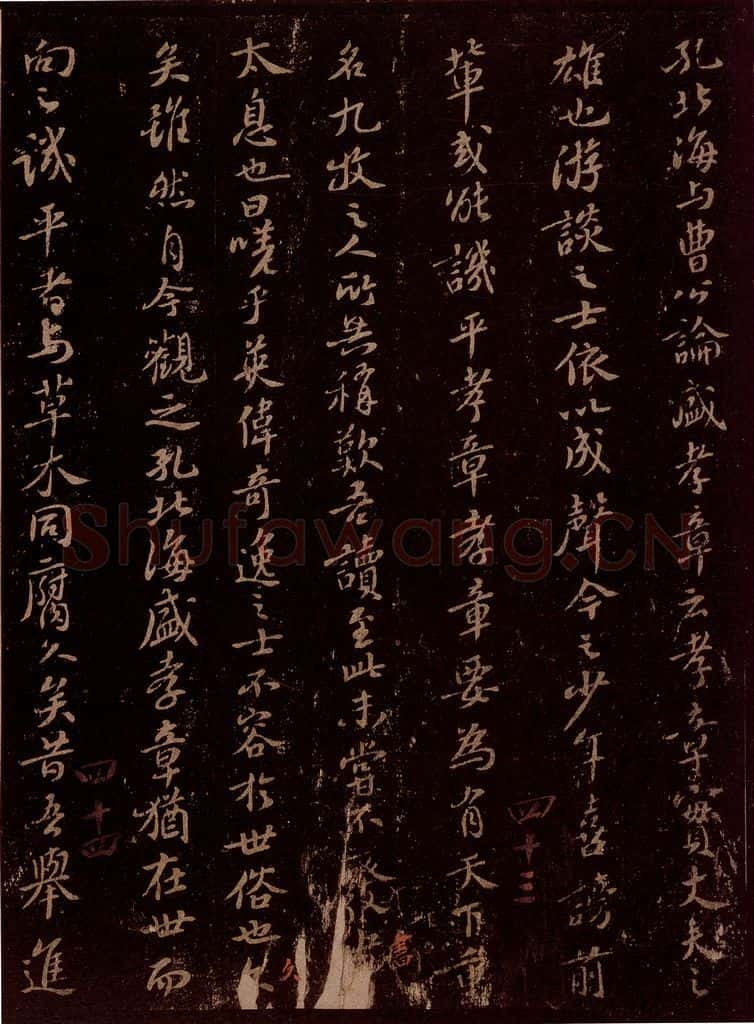 孔北海与曹公論盛孝章云孝章實丈夫之
雄也游談之士依以成聲今之少年喜謗前
輩或能譏平孝章孝章要為有天下重
名九牧之人所共稱歎吾讀至此未嘗不廢書
太息也曰嗟乎英偉奇逸之士不容於世俗也久
矣雖然自今觀之孔北海盛孝章猶在世而
向之譏平者与草木同腐久矣昔吾舉進
四十三
四十四
書
久
Shufawang.CN